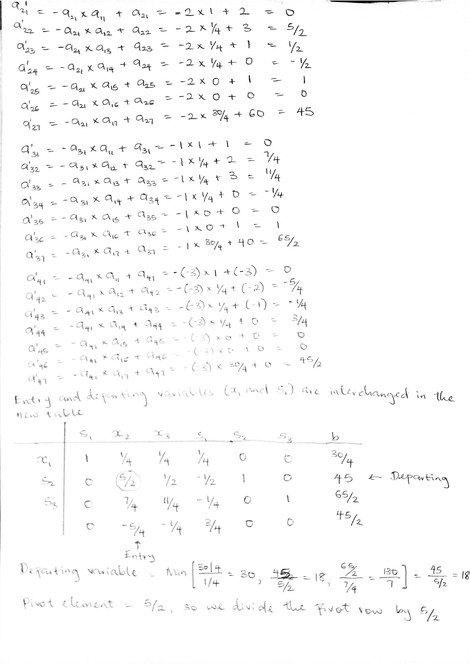 a'21 = -a21 × a11 + a21 = -2 × 1 + 2 = 0
a'22 = -a21 × a12 + a22 = -2 × 1/4 + 3 = 5/2
a'23 = -a21 × a13 + a23 = -2 × 1/4 + 1 = 1/2
a'24 = -a21 × a14 + a24 = -2 × 1/4 + 0 = -1/2
a'25 = -a21 × a15 + a25 = -2 × 0 + 1 = 1
a'26 = -a21 × a16 + a26 = -2 × 0 + 0 = 0
a'27 = -a21 × a17 + a27 = -2 × 30/4 + 60 = 45
a'31 = -a31 × a11 + a31 = -1 × 1 + 1 = 0
a'32 = -a31 × a12 + a32 = -1 × 1/4 + 2 = 7/4
a'33 = -a31 × a13 + a33 = -1 × 1/4 + 3 = 11/4
a'34 = -a31 × a14 + a34 = -1 × 1/4 + 0 = -1/4
a'35 = -a31 × a15 + a35 = -1 × 0 + 0 = 0
a'36 = -a31 × a16 + a36 = -1 × 0 + 1 = 1
a'37 = -a31 × a17 + a37 = -1 × 30/4 + 40 = 65/2
a'41 = -a41 × a11 + a41 = -(-3) × 1 + (-3) = 0
a'42 = -a41 × a12 + a42 = -(-3) × 1/4 + (-2) = -5/4
a'43 = -a41 × a13 + a43 = -(-3) × 1/4 + (-1) = -1/4
a'44 = -a41 × a14 + a44 = -(-3) × 1/4 + 0 = 3/4
a'45 = -a41 × a15 + a45 = -(-3) × 0 + 0 = 0
a'46 = -a41 × a16 + a46 = -(-3) × 0 + 0 = 0
a'47 = -a41 × a17 + a47 = -(-3) × 30/4 + 0 = 45/2
Entry and departing variables (x1 and s1) are interchanged in the
new table
s1 x2 x3 s1 s2 s3 b
x1 1 1/4 1/4 1/4 0 0 30/4
s2 0 5/2 1/2 -1/2 1 0 45 ← Departing
s3 0 7/4 11/4 -1/4 0 1 65/2
0 -5/4 -1/4 3/4 0 0 45/2
↑
Entry
Departing variable = Min [30/4 / 1/4 = 30, 45 / 5/2 = 18, 65/2 / 7/4 = 130/7] = 45 / 5/2 = 18
Pivot element = 5/2, so we divide the pivot row by 5/2